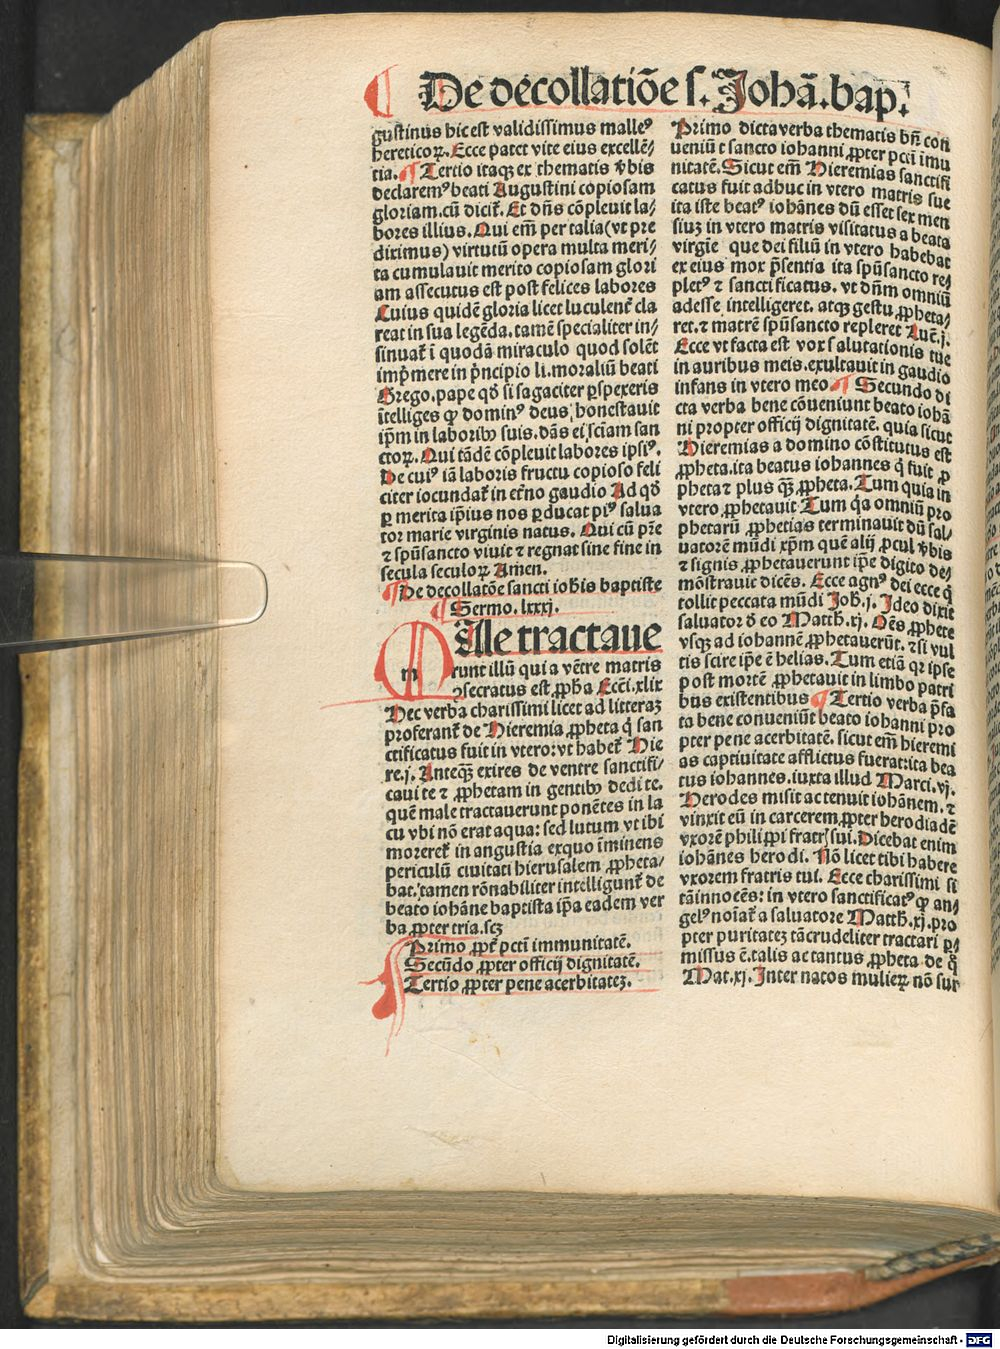 De decollatiōe s. Johā. bap.
gustinus hic est validissimus malleꝰ
hereticoꝝ. Ecce patet vite eius excellē⸗
tia. ¶ Tertio itaqꝫ ex thematis v̓bis
declaremꝰ beati Augustini copiosam
gloriam. cū dicit̄. Et dn̄s cōpleuit la⸗
bores illius. Qui em̄ per talia (vt pre
diximus) virtutū opera multa meri⸗
ta cumulauit merito copiosam glori
am assecutus est post felices labores
Cuius quidē gloria licet luculent̓ cla
reat in sua legēda. tamē specialiter in⸗
sinuat̄ ī quodā miraculo quod solēt
imp̄mere in p̓ncipio li. moraliū beati
Grego. pape qd̓ si sagaciter ꝑspexeris
ītelliges ꝙ dominꝰ deus honestauit
ip̄m in laboribꝫ suis. dās ei sciam san
ctoꝝ. Qui tādē cōpleuit labores ipsiꝰ.
De cuiꝰ iā laboris fructu copioso feli
citer iocundat̄ in et̓no gaudio Ad qd̓
ꝑ merita ip̄ius nos ꝑducat piꝰ salua
tor marie virginis natus. Qui cū pr̄e
⁊ spūsancto viuit ⁊ regnat sine fine in
secula seculoꝝ Amen.
¶ De decollatōe sancti iohis baptiste
¶ Sermo. lxxxj.
Male tractaue
runt illū qui a vētre matris
ↄsecratus est ꝓph̄a Ecci. xlix
Hec verba charissimi licet ad litteraꝫ
proferant̄ de Hieremia ꝓpheta q̓ san
ctificatus fuit in vtero: vt habet̄ Hie
re. j. Anteqꝫ exires de ventre sanctifi⸗
caui te ⁊ ꝓphetam in gentibꝫ dedi te.
quē male tractauerunt ponētes in la
cu vbi nō erat aqua: sed lutum vt ibi
moreret̄ in angustia exquo īminens
periculū ciuitati hierusalem ꝓpheta⸗
bat. tamen rōnabiliter intelligunt̄ de
beato iohāne baptista ip̄a eadem ver
ba ꝓpter tria. scꝫ
Primo ꝓpt̓ pctī immunitatē.
Secūdo ꝓpter officij dignitatē.
Tertio ꝓpter pene acerbitateꝫ.
Primo dicta verba thematis bn̄ con
ueniūt sancto iohanni ꝓpter pctī imu
nitatē. Sicut em̄ Hieremias sanctifi
catus fuit adhuc in vtero matris sue
ita iste beatꝰ iohānes dū esset sex men
siuꝫ in vtero matris visitatus a beata
virgīe que dei filiū in vtero habebat
ex eius mox p̄sentia ita spūsancto re
pletꝰ ⁊ sanctificatus. vt dn̄m omniū
adesse intelligeret. atqꝫ gestu ꝓpheta⸗
ret. ⁊ matrē spūsancto repleret Luc̄. j.
Ecce vt facta est vox salutationis tue
in auribus meis. exultauit in gaudio
infans in vtero meo ¶ Secundo di
cta verba bene cōueniunt beato iohā
ni propter officij dignitatē. quia sicut
Hieremias a domino cōstitutus est
ꝓpheta. ita beatus iohannes q̓ fuit ꝓ
pheta ⁊ plus qꝫ ꝓpheta. Tum quia in
vtero ꝓphetauit Tum q̓a omniū pro
phetarū ꝓphetias terminauit dū sal⸗
uatorē mūdi xp̄m quē alij ꝓcul v̓bis
⁊ signis ꝓphetauerunt ip̄e digito de⸗
mōstrauit dicēs. Ecce agnꝰ dei ecce q̓
tollit peccata mūdi Joh̄. j. Ideo dixit
saluator d̓ eo Matth̄. xj. Oēs ꝓphete
vsqꝫ ad iohannē ꝓphetauerūt. ⁊ si vul
tis scire ip̄e ē helias. Tum etiā qꝛ ipse
post mortē ꝓphetauit in limbo patri
bus existentibus ¶ Tertio verba p̄fa
ta bene conueniūt beato iohanni pro
pter pene acerbitatē. sicut em̄ hieremi
as captiuitate afflictus fuerat: ita bea
tus iohannes. iuxta illud Marci. vj.
Herodes misit ac tenuit iohānem. ⁊
vinxit eū in carcerem ꝓpter herodiadē
vxorē philippi fratris sui. Dicebat enim
iohānes herodi. Nō licet tibi habere
vxorem fratris tui. Ecce charissimi si
tā innocēs: in vtero sanctificatꝰ ꝙ an⸗
gelꝰ noīat̄ a saluatore Matth̄. xj. pro
pter puritateꝫ tā crudeliter tractari ꝑ⸗
missus ē. talis ac tantus ꝓpheta de q̊
Mat. xj. Inter natos mulieꝝ nō sur
Digitalisierung gefördert durch die Deutsche Forschungsgemeinschaft - DFG